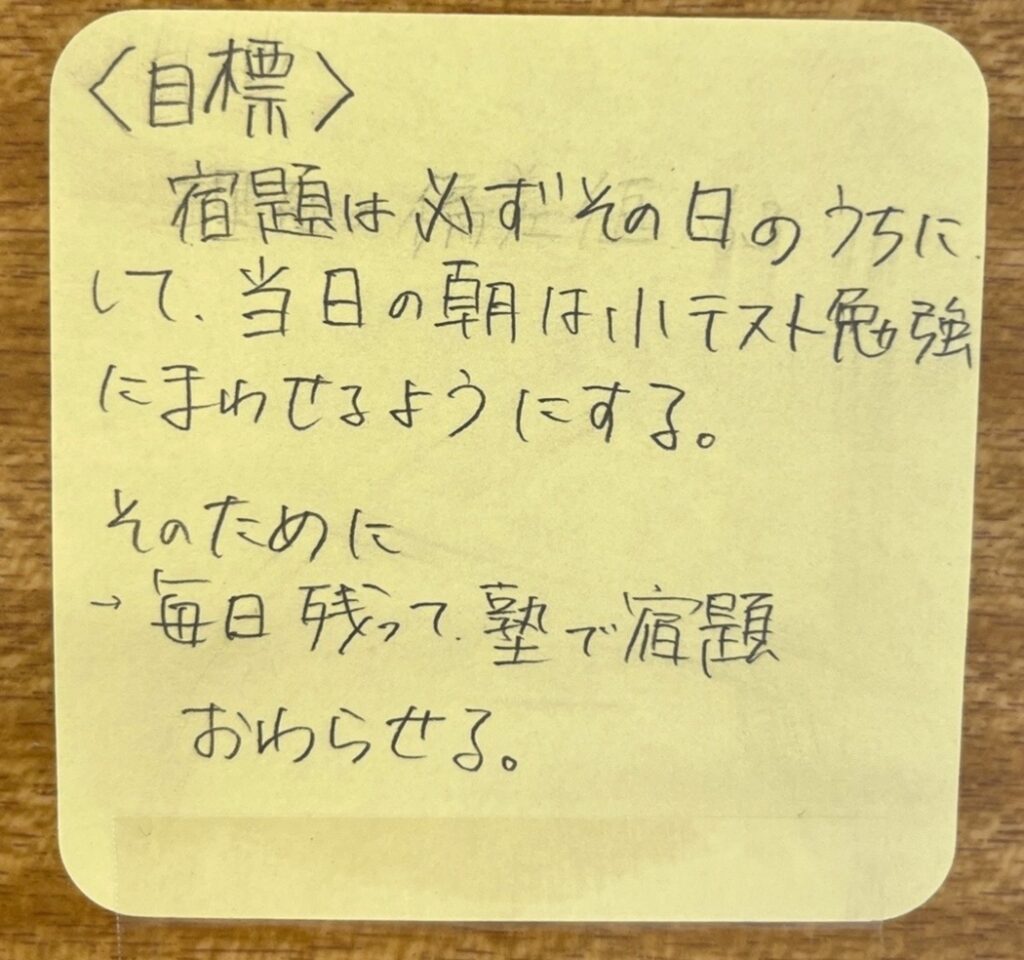 〈目標〉
宿題は必ずその日のうちに
して、当日の朝は小テスト勉強
にまわせるようにする。
そのために
→毎日残って、塾で宿題
おわらせる。